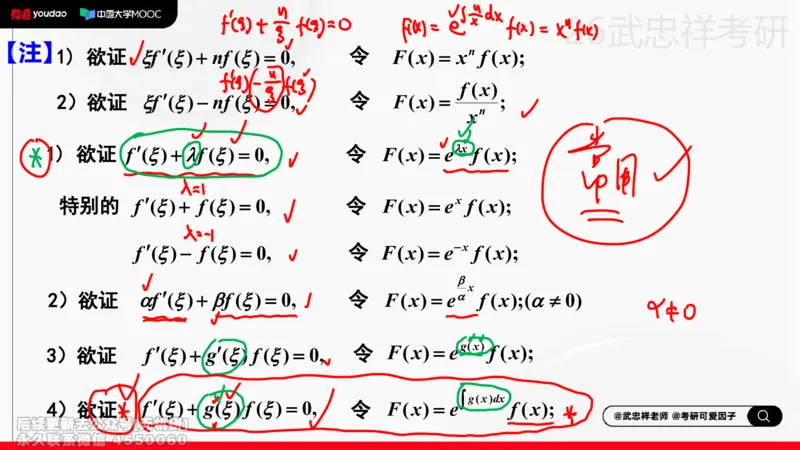 有道 youdao 中国大学MOOC
f'(ξ) + n/ξ f(ξ) = 0 F(x) = e^{∫ n/x dx} f(x) = x^n f(x)
26武忠祥考研
【注】1）欲证 ξf′(ξ) + nf(ξ) = 0, 令 F(x) = x^n f(x);
f'(ξ) - n/ξ f(ξ)
2）欲证 ξf′(ξ) − nf(ξ) = 0, 令 F(x) = f(x)/x^n;
* 1）欲证 f′(ξ) + λf(ξ) = 0, 令 F(x) = e^{λx} f(x);
λ=1
特别的 f′(ξ) + f(ξ) = 0, 令 F(x) = e^x f(x);
λ=-1
f′(ξ) − f(ξ) = 0, 令 F(x) = e^{−x} f(x);
2）欲证 αf′(ξ) + βf(ξ) = 0, 令 F(x) = e^{β/α x} f(x); (α ≠ 0)
α≠0
3）欲证 f′(ξ) + g′(ξ)f(ξ) = 0, 令 F(x) = e^{g(x)} f(x);
4）欲证 * f′(ξ) + g(ξ)f(ξ) = 0, 令 F(x) = e^{∫g(x)dx} f(x); *
@武忠祥老师 @考研可爱因子
永久联系微信 4550060